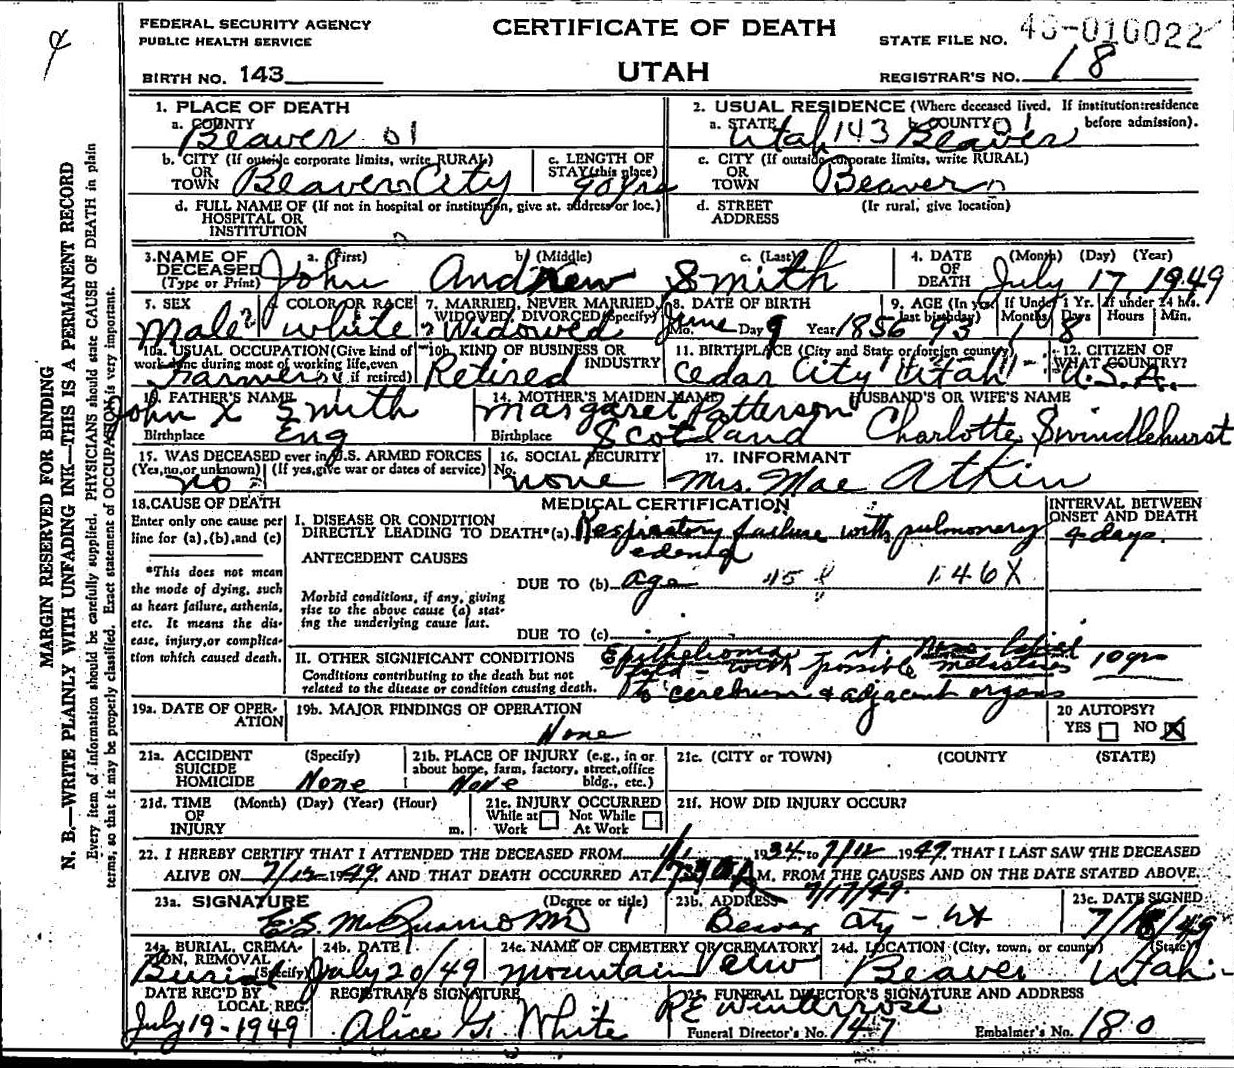 FEDERAL SECURITY AGENCY
PUBLIC HEALTH SERVICE
BIRTH NO. 143
CERTIFICATE OF DEATH
UTAH
STATE FILE NO. 49-010022
REGISTRAR'S NO. 18
MARGIN RESERVED FOR BINDING
N. B.—WRITE PLAINLY WITH UNFADING INK—THIS IS A PERMANENT RECORD
Every item of information should be carefully supplied. PHYSICIANS should state CAUSE OF DEATH in plain
terms, so that it may be properly classified. Exact statement of OCCUPATION is very important.
1. PLACE OF DEATH
a. COUNTY
Beaver 01
b. CITY (If outside corporate limits, write RURAL)
OR
TOWN Beaver City
c. LENGTH OF
STAY (this place)
90 yrs
d. FULL NAME OF (If not in hospital or institution, give st. address or loc.)
HOSPITAL OR
INSTITUTION
2. USUAL RESIDENCE (Where deceased lived. If institution: residence
before admission).
a. STATE b. COUNTY
Utah 143 Beaver 01
c. CITY (If outside corporate limits, write RURAL)
OR
TOWN Beaver
d. STREET (If rural, give location)
ADDRESS
3. NAME OF DECEASED (Type or Print)
a. (First) b. (Middle) c. (Last)
John Andrew Smith
4. DATE OF DEATH (Month) (Day) (Year)
July 17 1949
5. SEX
Male
6. COLOR OR RACE
white
7. MARRIED, NEVER MARRIED, WIDOWED, DIVORCED (Specify)
Widowed
8. DATE OF BIRTH
Mo. June Day 9 Year 1856
9. AGE (In yrs. last birthday)
93
If Under 1 Yr. Months Days
1 8
If under 24 hrs. Hours Min.
10a. USUAL OCCUPATION (Give kind of work done during most of working life, even if retired)
Farmer
10b. KIND OF BUSINESS OR INDUSTRY
Retired
11. BIRTHPLACE (City and State or foreign country)
Cedar City Utah
12. CITIZEN OF WHAT COUNTRY?
U.S.A.
13. FATHER'S NAME
John X Smith
Birthplace Eng
14. MOTHER'S MAIDEN NAME
Margaret Patterson
Birthplace Scotland
HUSBAND'S OR WIFE'S NAME
Charlotte Swindlehurst
15. WAS DECEASED ever in U.S. ARMED FORCES
(Yes, no, or unknown) (If yes, give war or dates of service)
no
16. SOCIAL SECURITY No.
none
17. INFORMANT
Mrs. Mae Atkin
18. CAUSE OF DEATH
Enter only one cause per
line for (a), (b), and (c)
*This does not mean
the mode of dying, such
as heart failure, asthenia,
etc. It means the dis-
ease, injury, or complica-
tion which caused death.
MEDICAL CERTIFICATION
INTERVAL BETWEEN ONSET AND DEATH
I. DISEASE OR CONDITION
DIRECTLY LEADING TO DEATH* (a) Respiratory failure with pulmonary
edema
4 days.
ANTECEDENT CAUSES
DUE TO (b) age 146X
Morbid conditions, if any, giving
rise to the above cause (a) stat-
ing the underlying cause last.
DUE TO (c)
II. OTHER SIGNIFICANT CONDITIONS
Conditions contributing to the death but not
related to the disease or condition causing death.
Epithelioma rt. Naso labial
fold with possible metastases
to cerebrum & adjacent organs
10 yrs
19a. DATE OF OPER-
ATION
19b. MAJOR FINDINGS OF OPERATION
None
20 AUTOPSY?
YES NO X
21a. ACCIDENT (Specify)
SUICIDE
HOMICIDE None
21b. PLACE OF INJURY (e.g., in or
about home, farm, factory, street, office
bldg., etc.)
None
21c. (CITY or TOWN) (COUNTY) (STATE)
21d. TIME (Month) (Day) (Year) (Hour)
OF
INJURY m.
21e. INJURY OCCURRED
While at Work Not While At Work
21f. HOW DID INJURY OCCUR?
22. I HEREBY CERTIFY THAT I ATTENDED THE DECEASED FROM 1/1 1934 to 7/12 1949, THAT I LAST SAW THE DECEASED
ALIVE ON 7/12 1949, AND THAT DEATH OCCURRED AT M, FROM THE CAUSES AND ON THE DATE STATED ABOVE.
7/17/49.
23a. SIGNATURE (Degree or title)
E.S. McQuarrie MD
23b. ADDRESS
Beaver City - Ut
23c. DATE SIGNED
7/18/49
24a. BURIAL, CREMA-
TION, REMOVAL (Specify)
Burial
24b. DATE
July 20/49
24c. NAME OF CEMETERY OR CREMATORY
Mountain View
24d. LOCATION (City, town, or county) (State)
Beaver Utah
DATE REC'D BY LOCAL REG.
July 19-1949
REGISTRAR'S SIGNATURE
Alice G. White
25. FUNERAL DIRECTOR'S SIGNATURE AND ADDRESS
R E Winterrose
Funeral Director's No. 147 Embalmer's No. 180